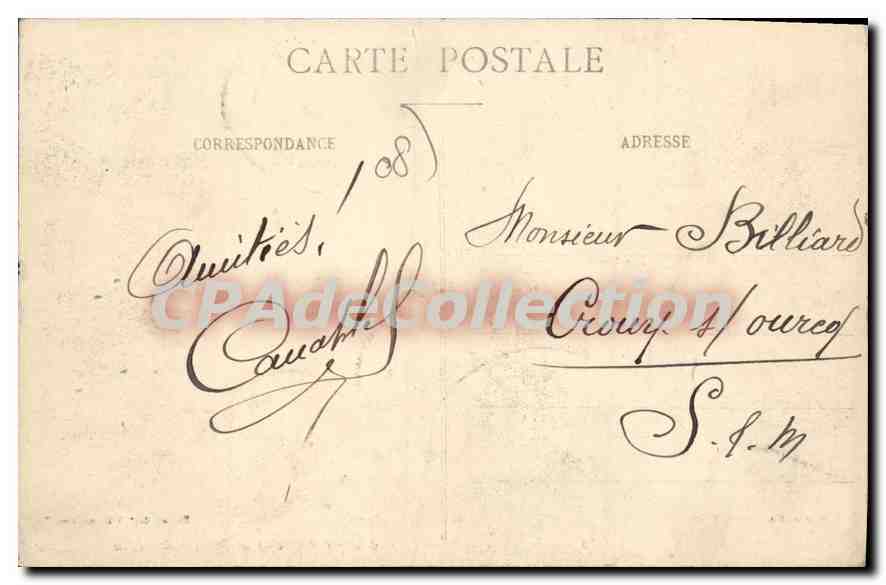 CARTE POSTALE
CORRESPONDANCE
ADRESSE
/08
Amitiés.
Monsieur Billiard
Crouy s/ ourcq
S. &. M
CPAdeCollection